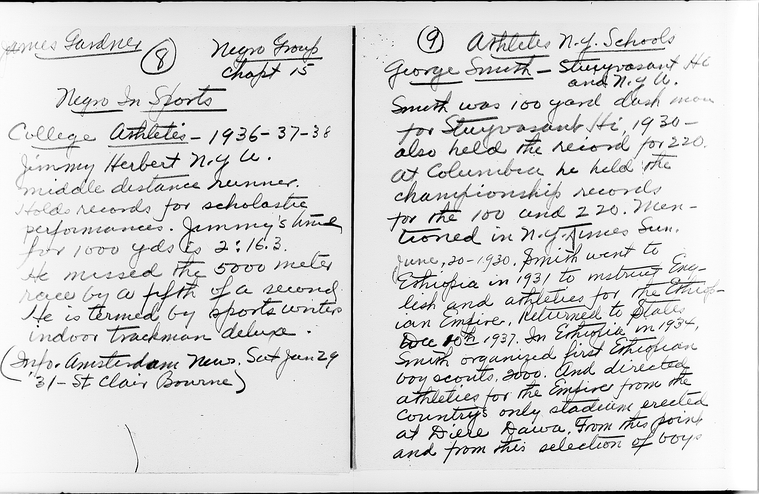 James Gardner
(8)
Negro Group
Chapt 15
Negro In Sports
College Athletis - 1936-37-38
Jimmy Herbert N.Y.U.
middle distance runner.
Holds records for scholastic
performances. Jimmy's time
for 1000 yds is 2:16.3.
He missed the 5000 meter
race by a fifth of a second
He is termed by sports writers
indoor trackman deluxe.
(Info. Amsterdam News. Sat Jan 29
'31 - St Clair Bourne)
(9) Athletes N.Y. Schools
George Smith - Stuyvasant Hi
and N.Y.U.
Smith was 100 yard dash man
for Stuyvasant Hi, 1930 -
also held the record for 220.
at Columbia he held the
championship records
for the 100 and 220. Men-
tioned in N.Y. Times Sun.
June, 20-1930. Smith went to
Ethiopia in 1931 to instruct Eng-
lish and athletics for the Ethiop-
ian Empire. Returned to States
Dec 10th 1937. In Ethiopia in 1934,
Smith organized first Ethiopian
boy scouts, 3000. And directed
athletics for the Empire from the
Country's only stadium erected
at Diere Dawa. From this point
and from this selection of boys